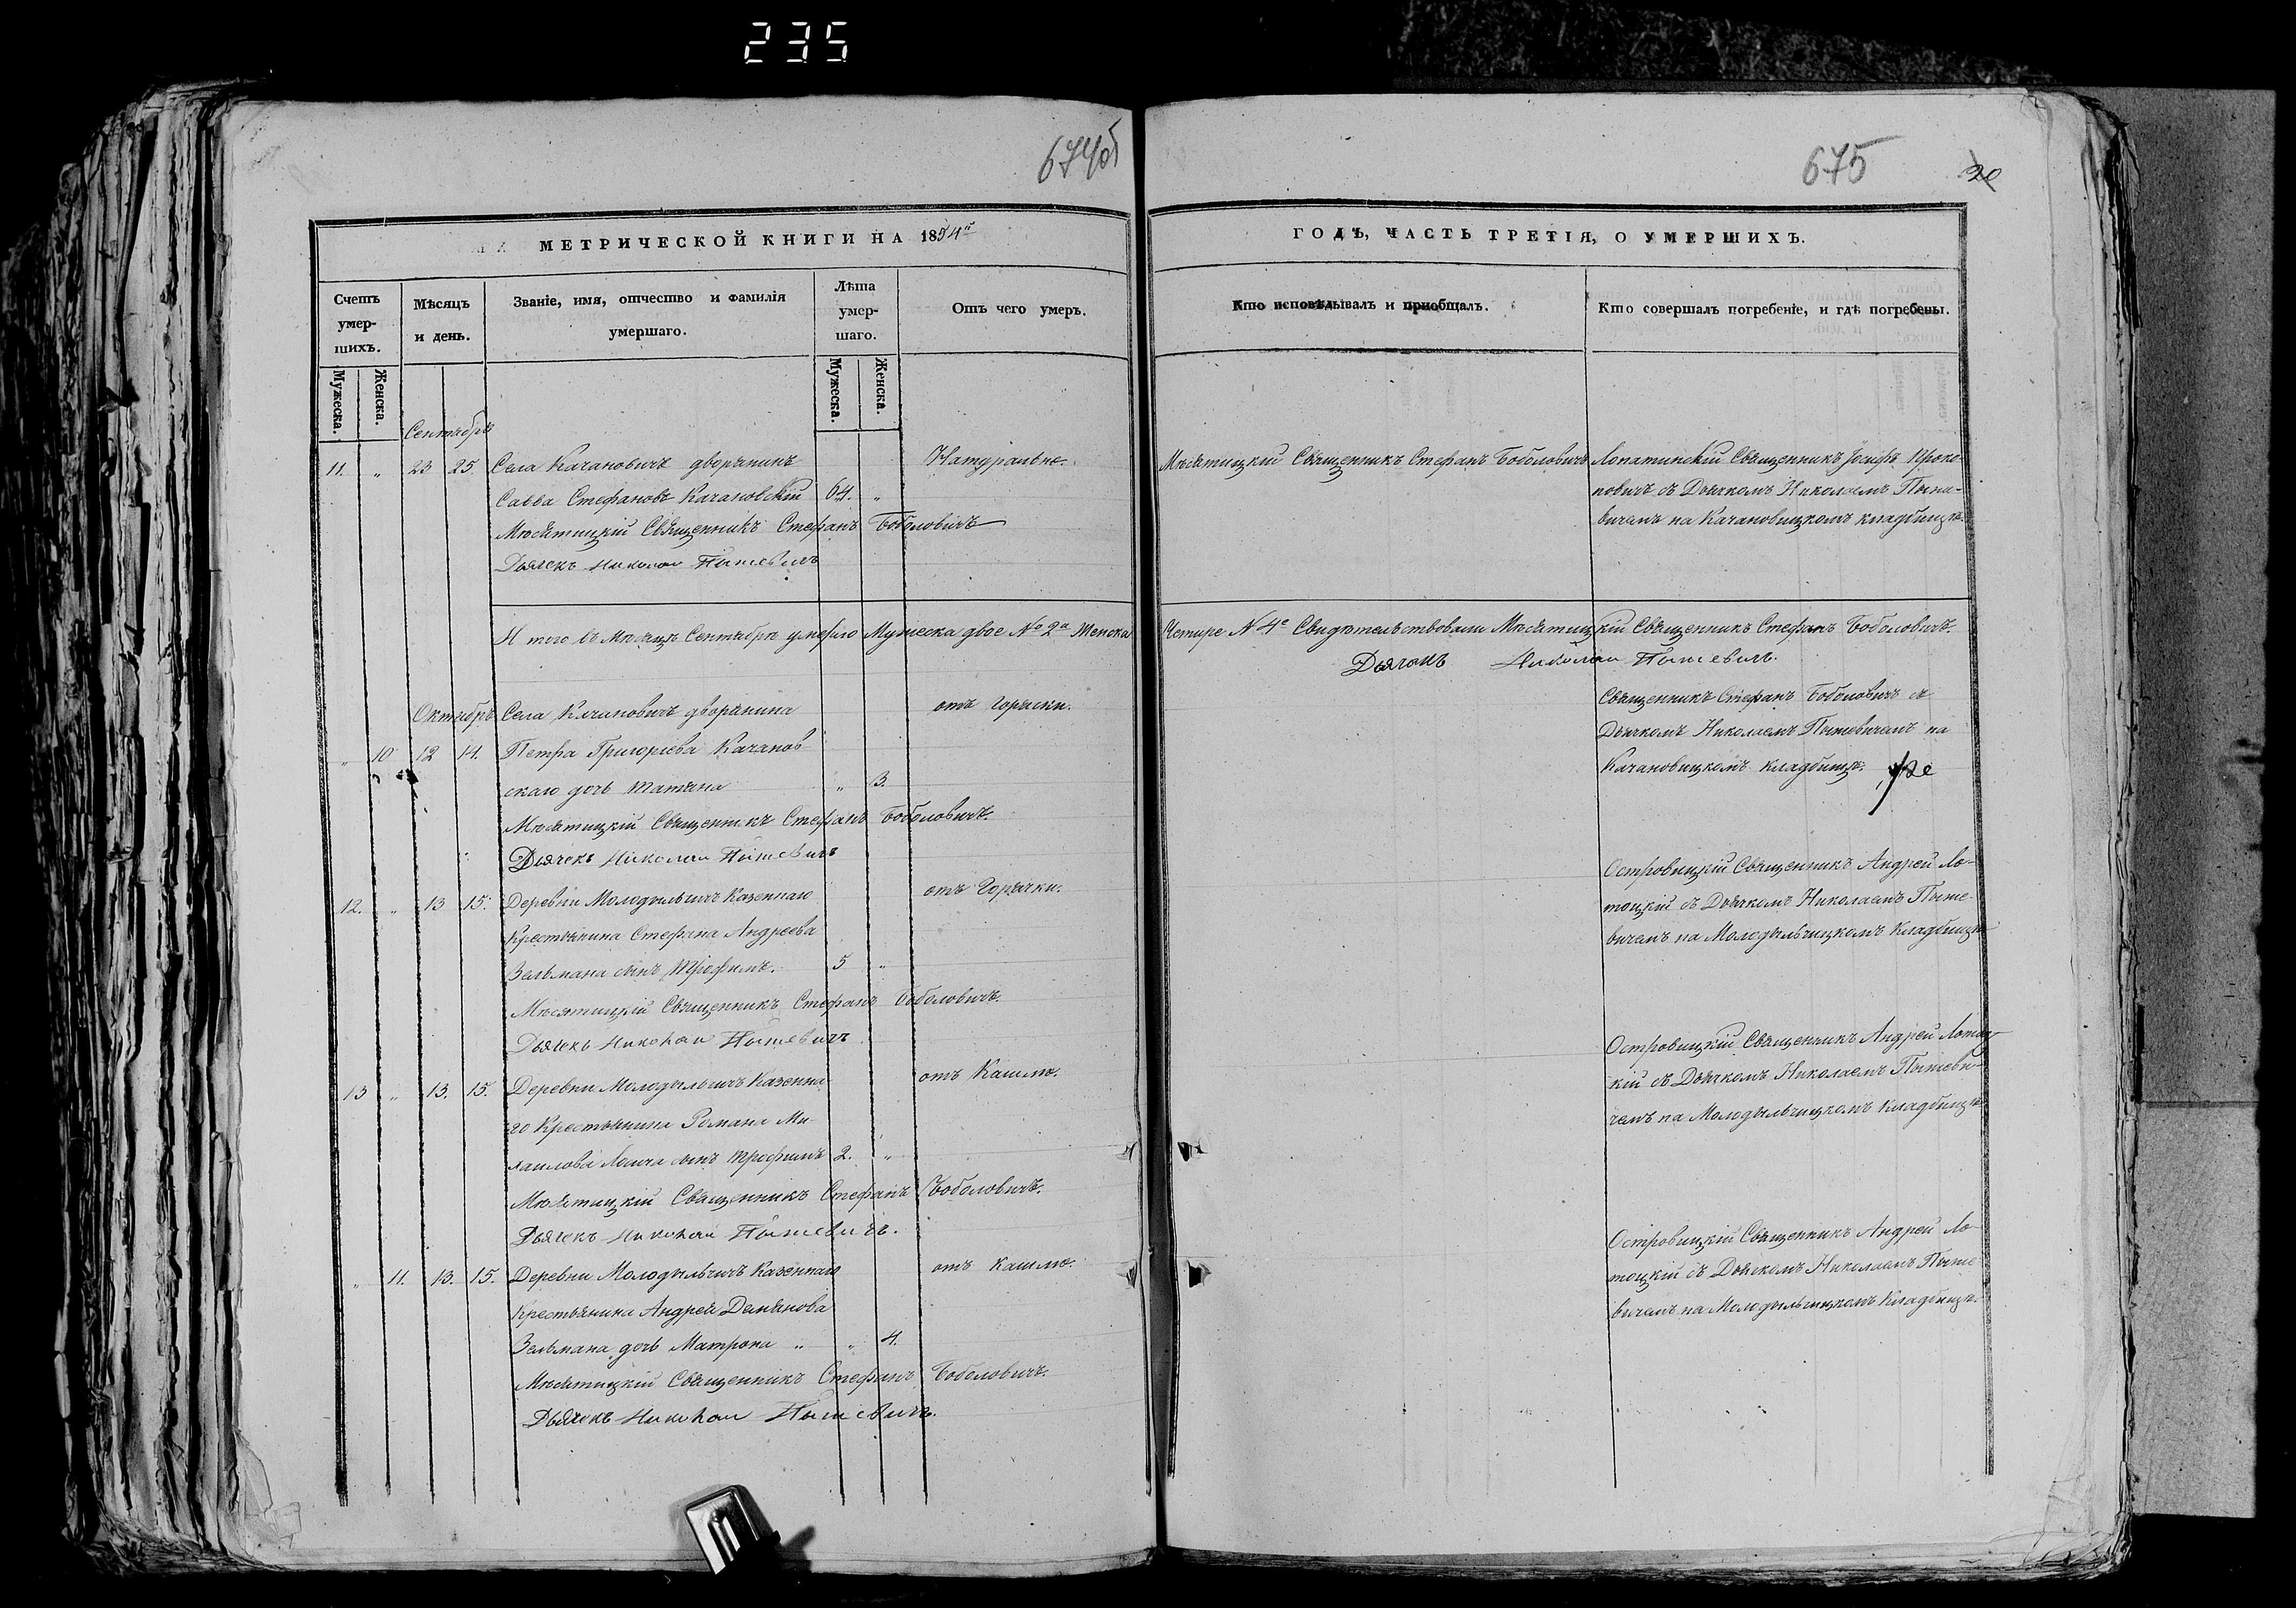 235
674об
675
20
МЕТРИЧЕСКОЙ КНИГИ НА 1854й
ГОДЪ, ЧАСТЬ ТРЕТІЯ, О УМЕРШИХЪ.
Счетъ умер-шихъ.
Мѣсяцъ и день.
Званіе, имя, отчество и фамилія умершаго.
Лѣта умер-шаго.
Отъ чего умеръ.
Кто исповѣдывалъ и приобщалъ.
Кто совершалъ погребеніе, и гдѣ погребены.
Мужеска.
Женска.
Мужеска.
Женска.
Сентябрь
11. " 23 25. Села Качановичъ дворянинъ Натурально.
Савва Стефановъ Качановскій 64. "
Мѣсятицкій Священникъ Стефанъ Боболовичъ
Дьячекъ Николай Пышевичъ
Мѣсятицкій Священникъ Стефанъ Боболовичъ
Лопатинскій Священникъ Іосифъ Проко-
повичъ съ Дьячкомъ Николаемъ Пыше-
вичемъ на Качановицкомъ кладбищѣ.
Итого въ Мѣсяцѣ Сентябрѣ умерло Мужеска двое № 2а Женска
Четыре № 4е Свидѣтельствовали Мѣсятицкій Священникъ Стефанъ Боболовичъ.
Дьячокъ Николай Пышевичъ.
Октябрь Села Качановичъ дворянина отъ горячки.
" 10 12 14. Петра Григорьева Качанов
скаго дочь Татьяна " 3.
Мѣсятицкій Священникъ Стефанъ Боболовичъ.
Дьячекъ Николай Пышевичъ
Священникъ Стефанъ Боболовичъ съ
Дьячкомъ Николаемъ Пышевичемъ на
Качановицкомъ кладбищѣ.
12. " 13 15. Деревни Молодыльчичъ Казеннаго отъ Горячки.
Крестьянина Стефана Андреева
Зельмана сынъ Трофимъ. 5 "
Мѣсятицкій Священникъ Стефанъ Боболовичъ.
Дьячекъ Николай Пышевичъ
Островицкій Священникъ Андрей Ло-
тоцкій съ Дьячкомъ Николаемъ Пыше-
вичемъ на Молодыльчицкомъ Кладбищѣ
13 " 13. 15. Деревни Молодыльчичъ Казенна- отъ Кашлю.
го Крестьянина Романа Ми-
хаилова сынъ Трофимъ 2. "
Мѣсятицкій Священникъ Стефанъ Боболовичъ.
Дьячекъ Николай Пышевичъ.
Островицкій Священникъ Андрей Лотоц-
кій съ Дьячкомъ Николаемъ Пышеви-
чемъ на Молодыльчицкомъ Кладбищѣ
" 11. 13. 15. Деревни Молодыльчичъ Казеннаго отъ кашлю.
Крестьянина Андрея Демьянова
Зельмана дочь Матрона " " 4.
Мѣсятицкій Священникъ Стефанъ Боболовичъ.
Дьячекъ Николай Пышевичъ.
Островицкій Священникъ Андрей Ло-
тоцкій съ Дьячкомъ Николаемъ Пыше
вичемъ на Молодыльчицкомъ Кладбищѣ.